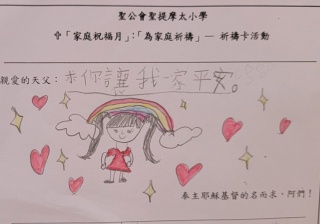 聖公會聖提摩太小學
「家庭祝福月」:「為家庭祈禱」— 祈禱卡活動
親愛的天父:求你讓我一家平安。
奉主耶穌基督的名而求,阿們!